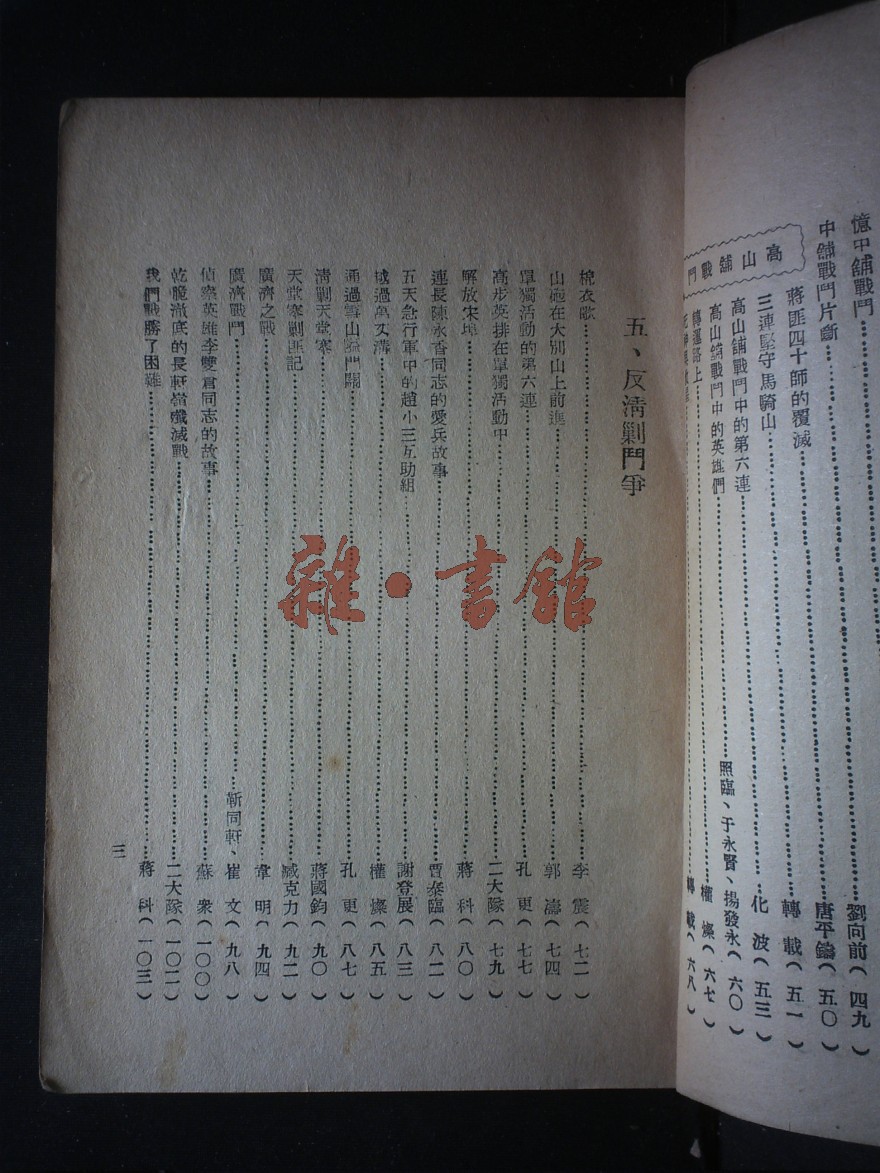 憶中舖戰鬥……劉向前(四九)
中舖戰鬥片斷……唐平鑄(五〇)
蔣匪四十師的覆滅……轉載(五一)
三連堅守馬騎山……化波(五三)
高山舖戰鬥中的第六連……照臨、于永賢、揚發永(六〇)
高山舖戰鬥中的英雄們……權燦(六七)
轉運路上……轉載(六八)
高山舖戰鬥
五、反淸剿鬥爭
棉衣歌……李震(七二)
山砲在大別山上前進……郭濤(七四)
單獨活動的第六連……孔更(七七)
高步英排在單獨活動中……二大隊(七九)
解放宋埠……蔣科(八〇)
連長陳永香同志的愛兵故事……賈泰臨(八二)
五天急行軍中的趙小三互助組……謝登展(八三)
越過萬丈溝……權燦(八五)
通過雲山 門關……孔更(八七)
淸剿天堂寨……蔣國鈞(九〇)
天堂寨剿匪記……臧克力(九二)
廣濟之戰……韋明(九四)
廣濟戰鬥……靳同軒、崔文(九八)
偵察英雄李雙倉同志的故事……蘇衆(一〇〇)
乾脆澈底的長軒嶺殲滅戰……二大隊(一〇二)
我們戰勝了困難……蔣科(一〇三)
三
雜·書館